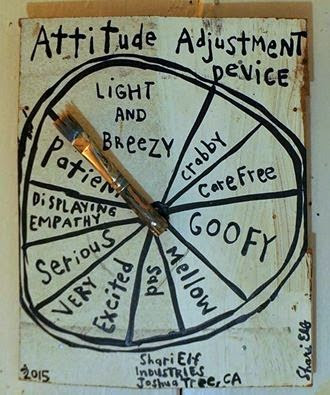 Attitude Adjustment
Device
LIGHT
AND
BREEZY
crabby
carefree
GOOFY
Mellow
sad
Excited
VERY
Serious
DISPLAYING
EMPATHY
Patient
Shari Elf
INDUSTRIES
Joshua Tree, CA
2015
Shari Elf